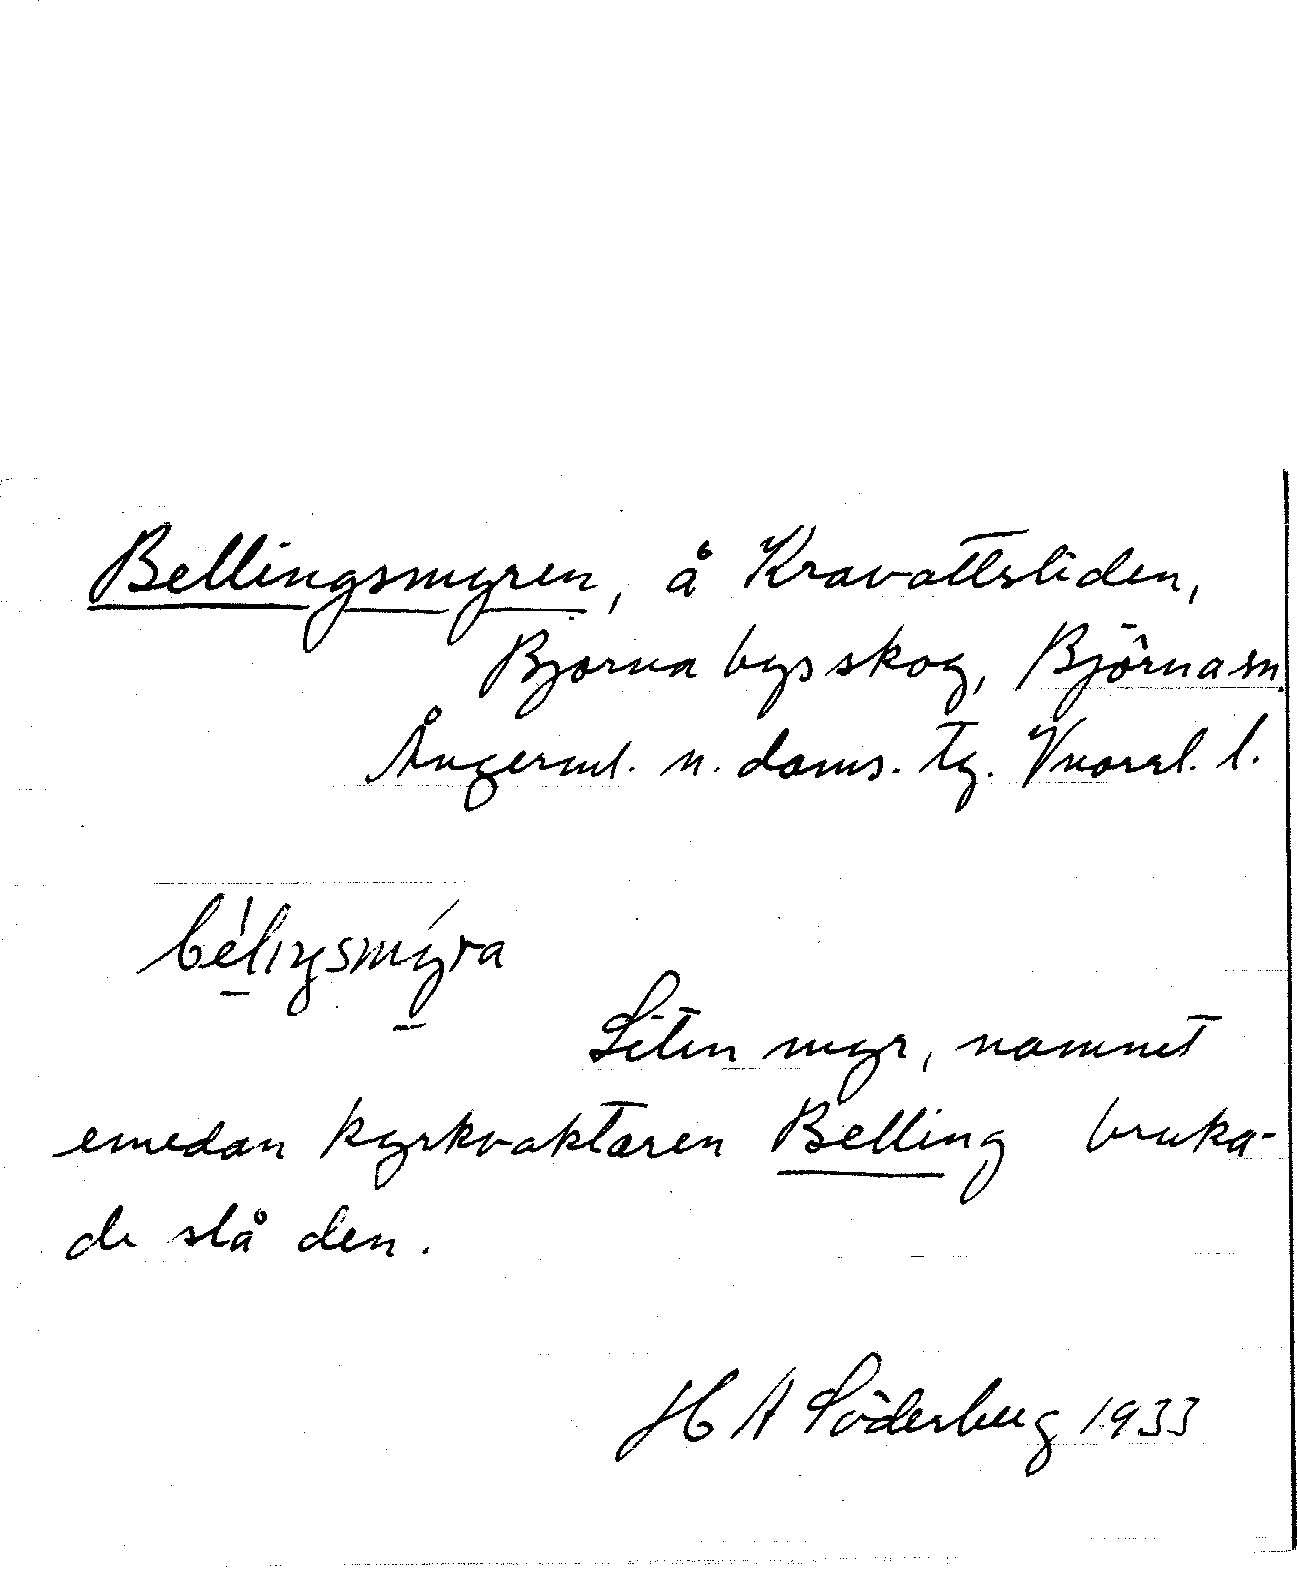 Bellingsmyren, å Kravattsliden,
Björna bys skog, Björna sn.
Ångerml. n. doms. tg. Vnorrl. l.
béliŋsmýra
Liten myr, namnet
emedan kyrkvaktaren Belling bruka-
de slå den.
H A Söderberg 1933